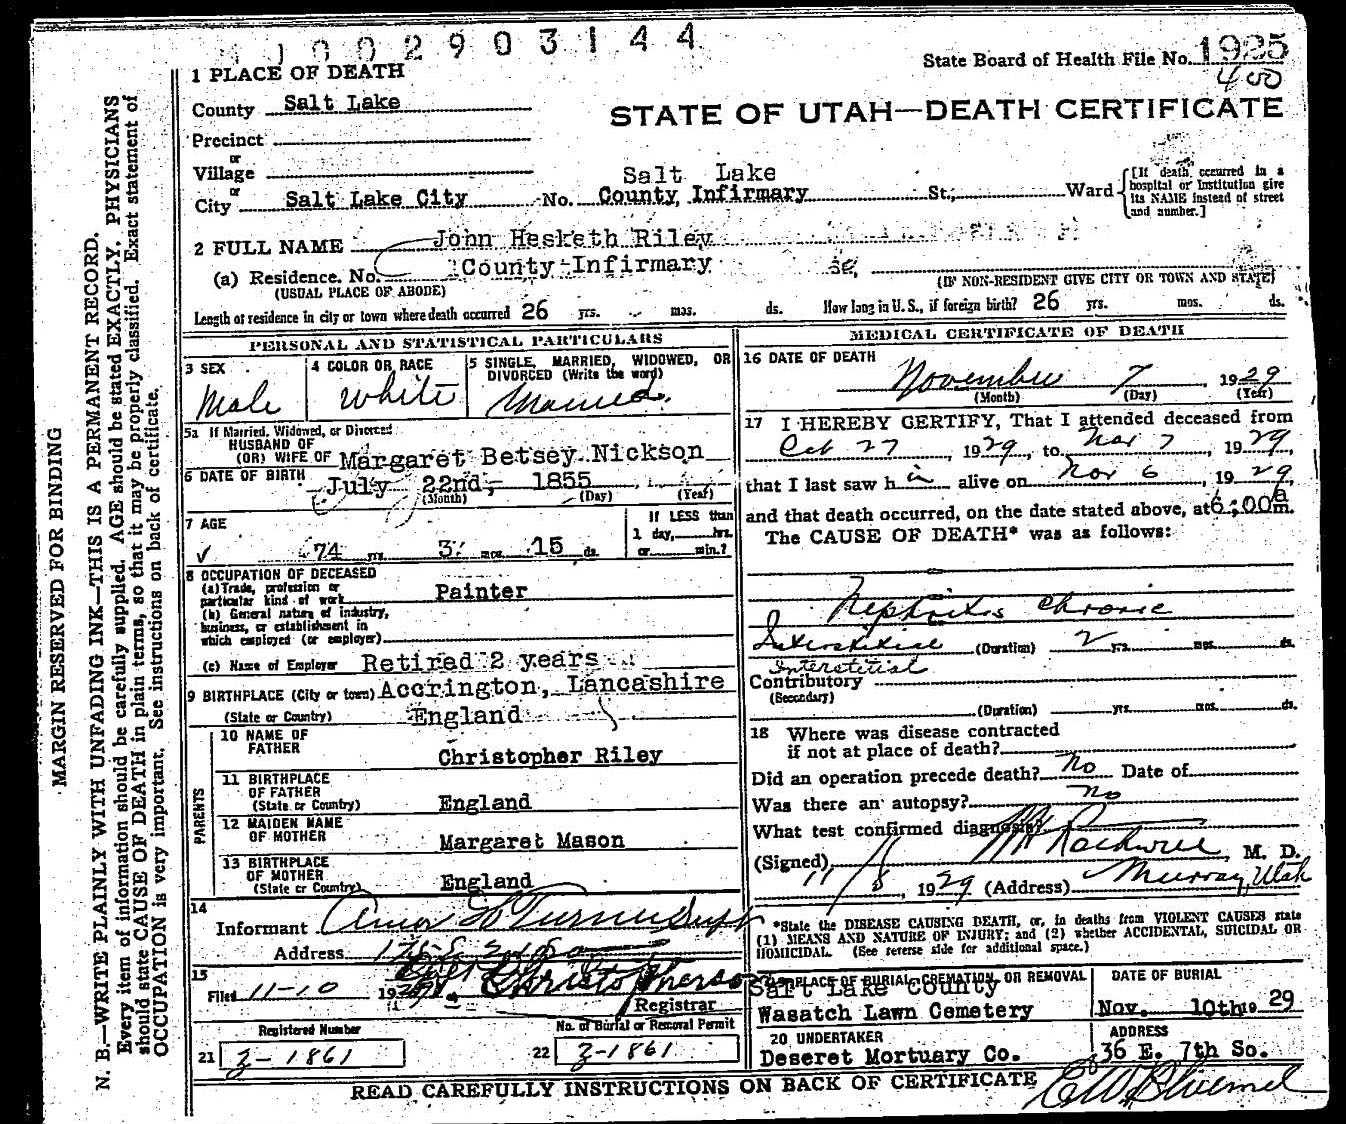 1002903144
State Board of Health File No. 1925
400
STATE OF UTAH—DEATH CERTIFICATE
1 PLACE OF DEATH
County Salt Lake
Precinct
or
Village
or
City Salt Lake City No. Salt Lake County Infirmary St.; Ward
[If death occurred in a hospital or Institution give its NAME instead of street and number.]
2 FULL NAME John Hesketh Riley
(a) Residence. No. County Infirmary St.,
(USUAL PLACE OF ABODE) (IF NON-RESIDENT GIVE CITY OR TOWN AND STATE)
Length of residence in city or town where death occurred 26 yrs. mos. ds. How long in U.S., if foreign birth? 26 yrs. mos. ds.
PERSONAL AND STATISTICAL PARTICULARS
3 SEX
Male
4 COLOR OR RACE
White
5 SINGLE, MARRIED, WIDOWED, OR DIVORCED (Write the word)
Married.
5a If Married, Widowed, or Divorced
HUSBAND OF
(OR) WIFE OF Margaret Betsey Nickson
6 DATE OF BIRTH July 22nd, 1855
(Month) (Day) (Year)
7 AGE
74 yrs. 3 mos. 15 ds.
If LESS than
1 day, hrs.
or min.?
8 OCCUPATION OF DECEASED
(a) Trade, profession or
particular kind of work Painter
(b) General nature of industry,
business, or establishment in
which employed (or employer)
(c) Name of Employer Retired 2 years
9 BIRTHPLACE (City or town) Accrington, Lancashire
(State or Country) England
PARENTS
10 NAME OF FATHER Christopher Riley
11 BIRTHPLACE OF FATHER (State or Country) England
12 MAIDEN NAME OF MOTHER Margaret Mason
13 BIRTHPLACE OF MOTHER (State or Country) England
14
Informant Turner Supt
Address
15
Filed 11-10 1929 Christopherson
Registrar
Registered Number
21 3-1861
No. of Burial or Removal Permit
22 3-1861
MEDICAL CERTIFICATE OF DEATH
16 DATE OF DEATH
November 7 1929
(Month) (Day) (Year)
17 I HEREBY CERTIFY, That I attended deceased from
Oct 27 1929, to Nov 7, 1929,
that I last saw h im alive on Nov 6, 1929,
and that death occurred, on the date stated above, at 6:00 a m.
The CAUSE OF DEATH* was as follows:
Nephritis Chronic
Interstitial (Duration) 2 yrs. mos. ds.
Interstitial
Contributory
(Secondary)
(Duration) yrs. mos. ds.
18 Where was disease contracted
if not at place of death?
Did an operation precede death? No Date of
Was there an autopsy? No
What test confirmed diagnosis?
(Signed) Rockwell, M. D.
11/8, 1929 (Address) Murray, Utah
*State the DISEASE CAUSING DEATH, or, in deaths from VIOLENT CAUSES state
(1) MEANS AND NATURE OF INJURY; and (2) whether ACCIDENTAL, SUICIDAL OR
HOMICIDAL. (See reverse side for additional space.)
PLACE OF BURIAL, CREMATION, OR REMOVAL
Salt Lake County
Wasatch Lawn Cemetery
DATE OF BURIAL
Nov. 10th 19 29
20 UNDERTAKER
Deseret Mortuary Co.
ADDRESS
36 E. 7th So.
READ CAREFULLY INSTRUCTIONS ON BACK OF CERTIFICATE
MARGIN RESERVED FOR BINDING
N. B.—WRITE PLAINLY WITH UNFADING INK—THIS IS A PERMANENT RECORD.
Every item of information should be carefully supplied. AGE should be stated EXACTLY. PHYSICIANS
should state CAUSE OF DEATH in plain terms, so that it may be properly classified. Exact statement of
OCCUPATION is very important. See instructions on back of certificate.